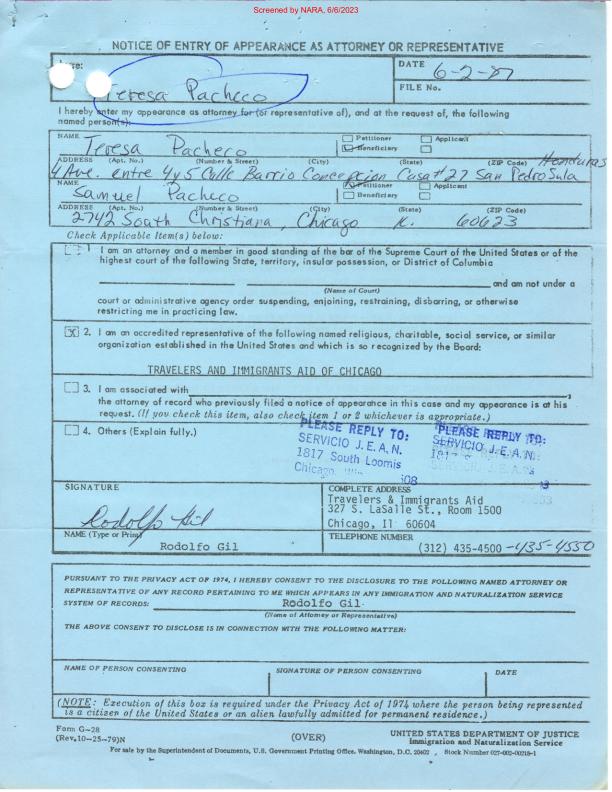 Screened by NARA, 6/6/2023
NOTICE OF ENTRY OF APPEARANCE AS ATTORNEY OR REPRESENTATIVE
re:
Teresa Pacheco
DATE 6-2-87
FILE No.
I hereby enter my appearance as attorney for (or representative of), and at the request of, the following
named person(s):
NAME Petitioner Applicant
Teresa Pacheco Beneficiary
ADDRESS (Apt. No.) (Number & Street) (City) (State) (ZIP Code) Honduras
4 Ave. entre 4 y 5 Calle Barrio Concepcion Casa #27 San Pedro Sula
NAME Petitioner Applicant
Samuel Pacheco Beneficiary
ADDRESS (Apt. No.) (Number & Street) (City) (State) (ZIP Code)
2742 South Christiana, Chicago 60623
Check Applicable Item(s) below:
1 I am an attorney and a member in good standing of the bar of the Supreme Court of the United States or of the
highest court of the following State, territory, insular possession, or District of Columbia
and am not under a
(Name of Court)
court or administrative agency order suspending, enjoining, restraining, disbarring, or otherwise
restricting me in practicing law.
X 2. I am an accredited representative of the following named religious, charitable, social service, or similar
organization established in the United States and which is so recognized by the Board:
TRAVELERS AND IMMIGRANTS AID OF CHICAGO
3. I am associated with ,
the attorney of record who previously filed a notice of appearance in this case and my appearance is at his
request. (If you check this item, also check item 1 or 2 whichever is appropriate.)
4. Others (Explain fully.)
PLEASE REPLY TO: PLEASE REPLY TO:
SERVICIO J.E.A.N. SERVICIO J.E.A.N.
1817 South Loomis 1817
Chicago,
SIGNATURE
Rodolfo Gil
COMPLETE ADDRESS
Travelers & Immigrants Aid
327 S. LaSalle St., Room 1500
Chicago, Il 60604
NAME (Type or Print)
Rodolfo Gil
TELEPHONE NUMBER
(312) 435-4500 -435-4550
PURSUANT TO THE PRIVACY ACT OF 1974, I HEREBY CONSENT TO THE DISCLOSURE TO THE FOLLOWING NAMED ATTORNEY OR
REPRESENTATIVE OF ANY RECORD PERTAINING TO ME WHICH APPEARS IN ANY IMMIGRATION AND NATURALIZATION SERVICE
SYSTEM OF RECORDS: Rodolfo Gil
(Name of Attorney or Representative)
THE ABOVE CONSENT TO DISCLOSE IS IN CONNECTION WITH THE FOLLOWING MATTER:
NAME OF PERSON CONSENTING SIGNATURE OF PERSON CONSENTING DATE
(NOTE: Execution of this box is required under the Privacy Act of 1974 where the person being represented
is a citizen of the United States or an alien lawfully admitted for permanent residence.)
Form G-28
(Rev.10-25-79)N
(OVER)
UNITED STATES DEPARTMENT OF JUSTICE
Immigration and Naturalization Service
For sale by the Superintendent of Documents, U.S. Government Printing Office, Washington, D.C. 20402 , Stock Number 027-002-00218-1